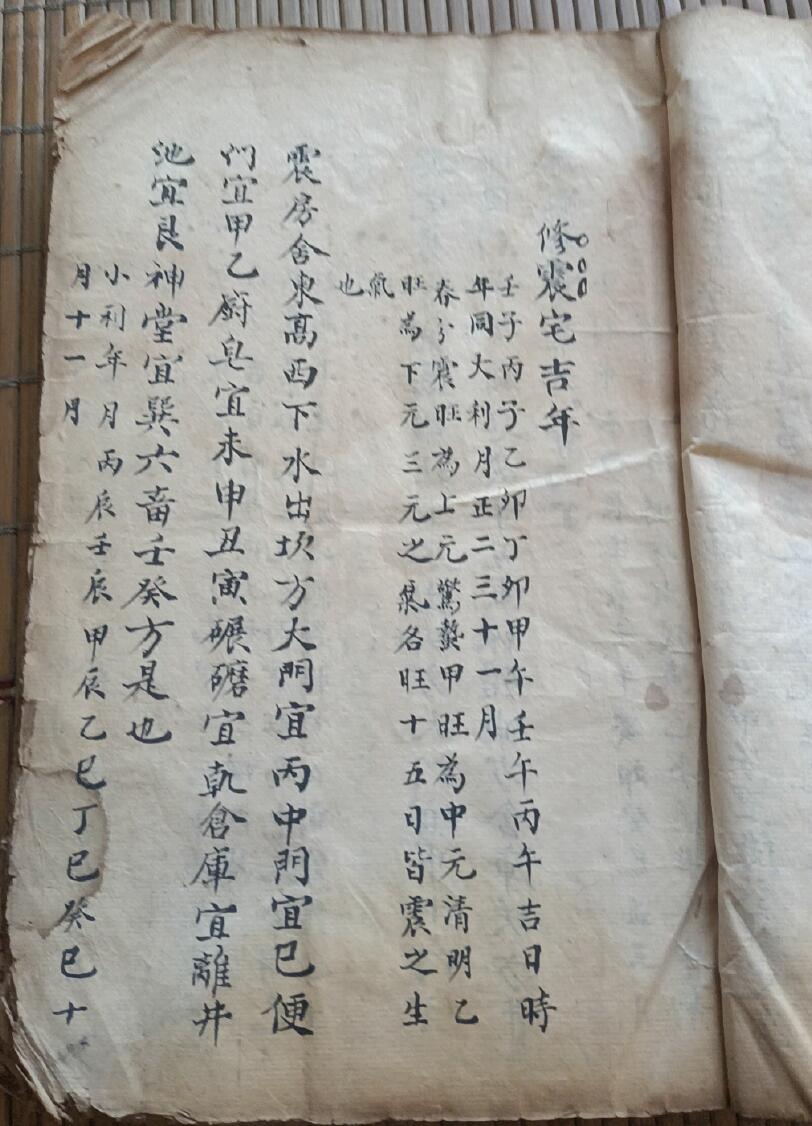 修震宅吉年
壬子丙子乙卯丁卯甲午壬午丙午吉日時
年同大利月正二三十一月
春分震旺為上元驚蟄甲旺為中元清明乙
旺為下元三元之氣各旺十五日皆震之生
氣
也
震房舍東高西下水出坎方大門宜丙中門宜巳便
门宜甲乙廚皂宜未申丑寅碾磨宜乹倉庫宜離井
池宜艮神堂宜巽六畜壬癸方是也
小利年月丙辰壬辰甲辰乙巳丁巳癸巳十
月十一月